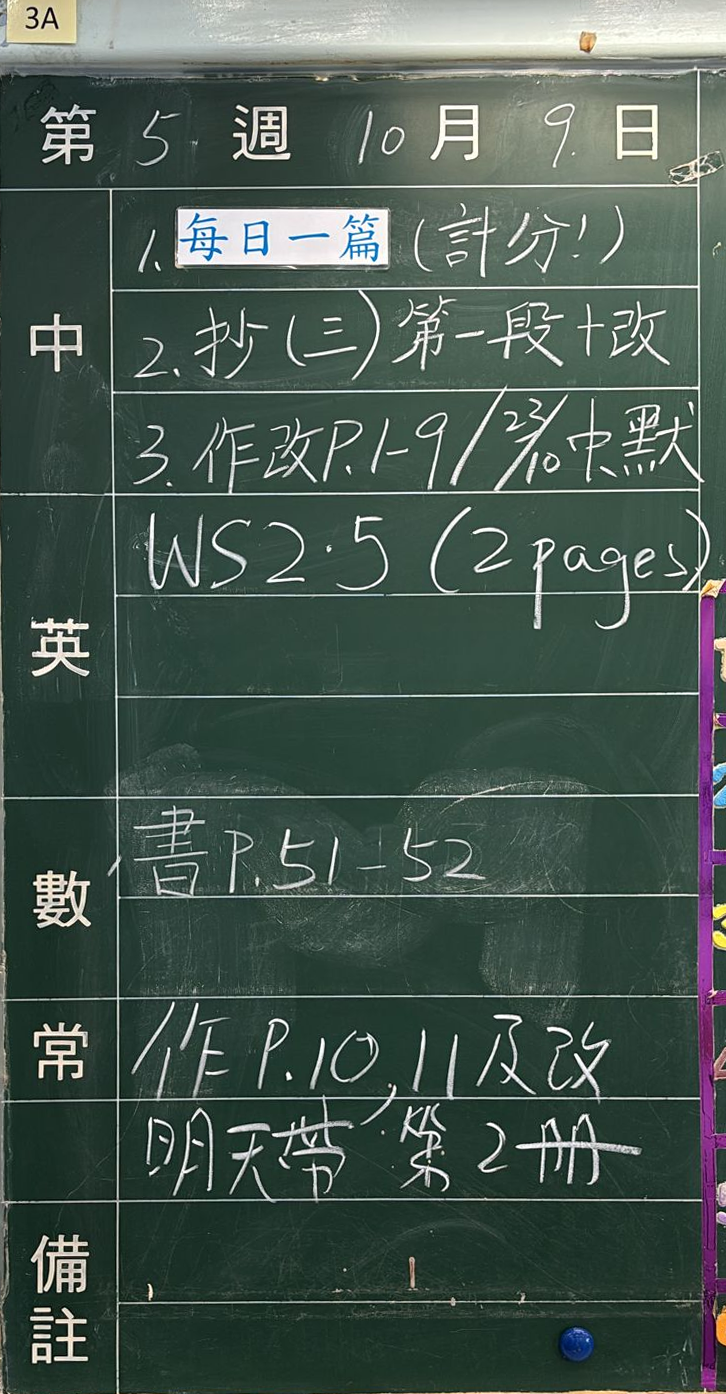 3A
第 5 週 10 月 9. 日
中
1. 每日一篇 (計分!)
2. 抄(三)第一段+改
3. 作改P.1-9/23/10中默
英
WS2.5 (2pages)
數
書P.51-52
常
作P.10,11及改
明天帶第2冊
備註